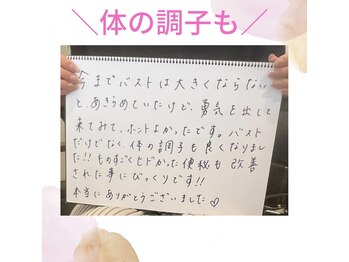 ＼体の調子も／
今までバストは大きくならない
と、あきらめていたけど、勇気を出して
来てみて、ホントよかったです。バスト
だけでなく、体の調子も良くなりまし
た!!ものすごくヒドかった便秘も改善
された事にびっくりです!!
本当にありがとうございました♡